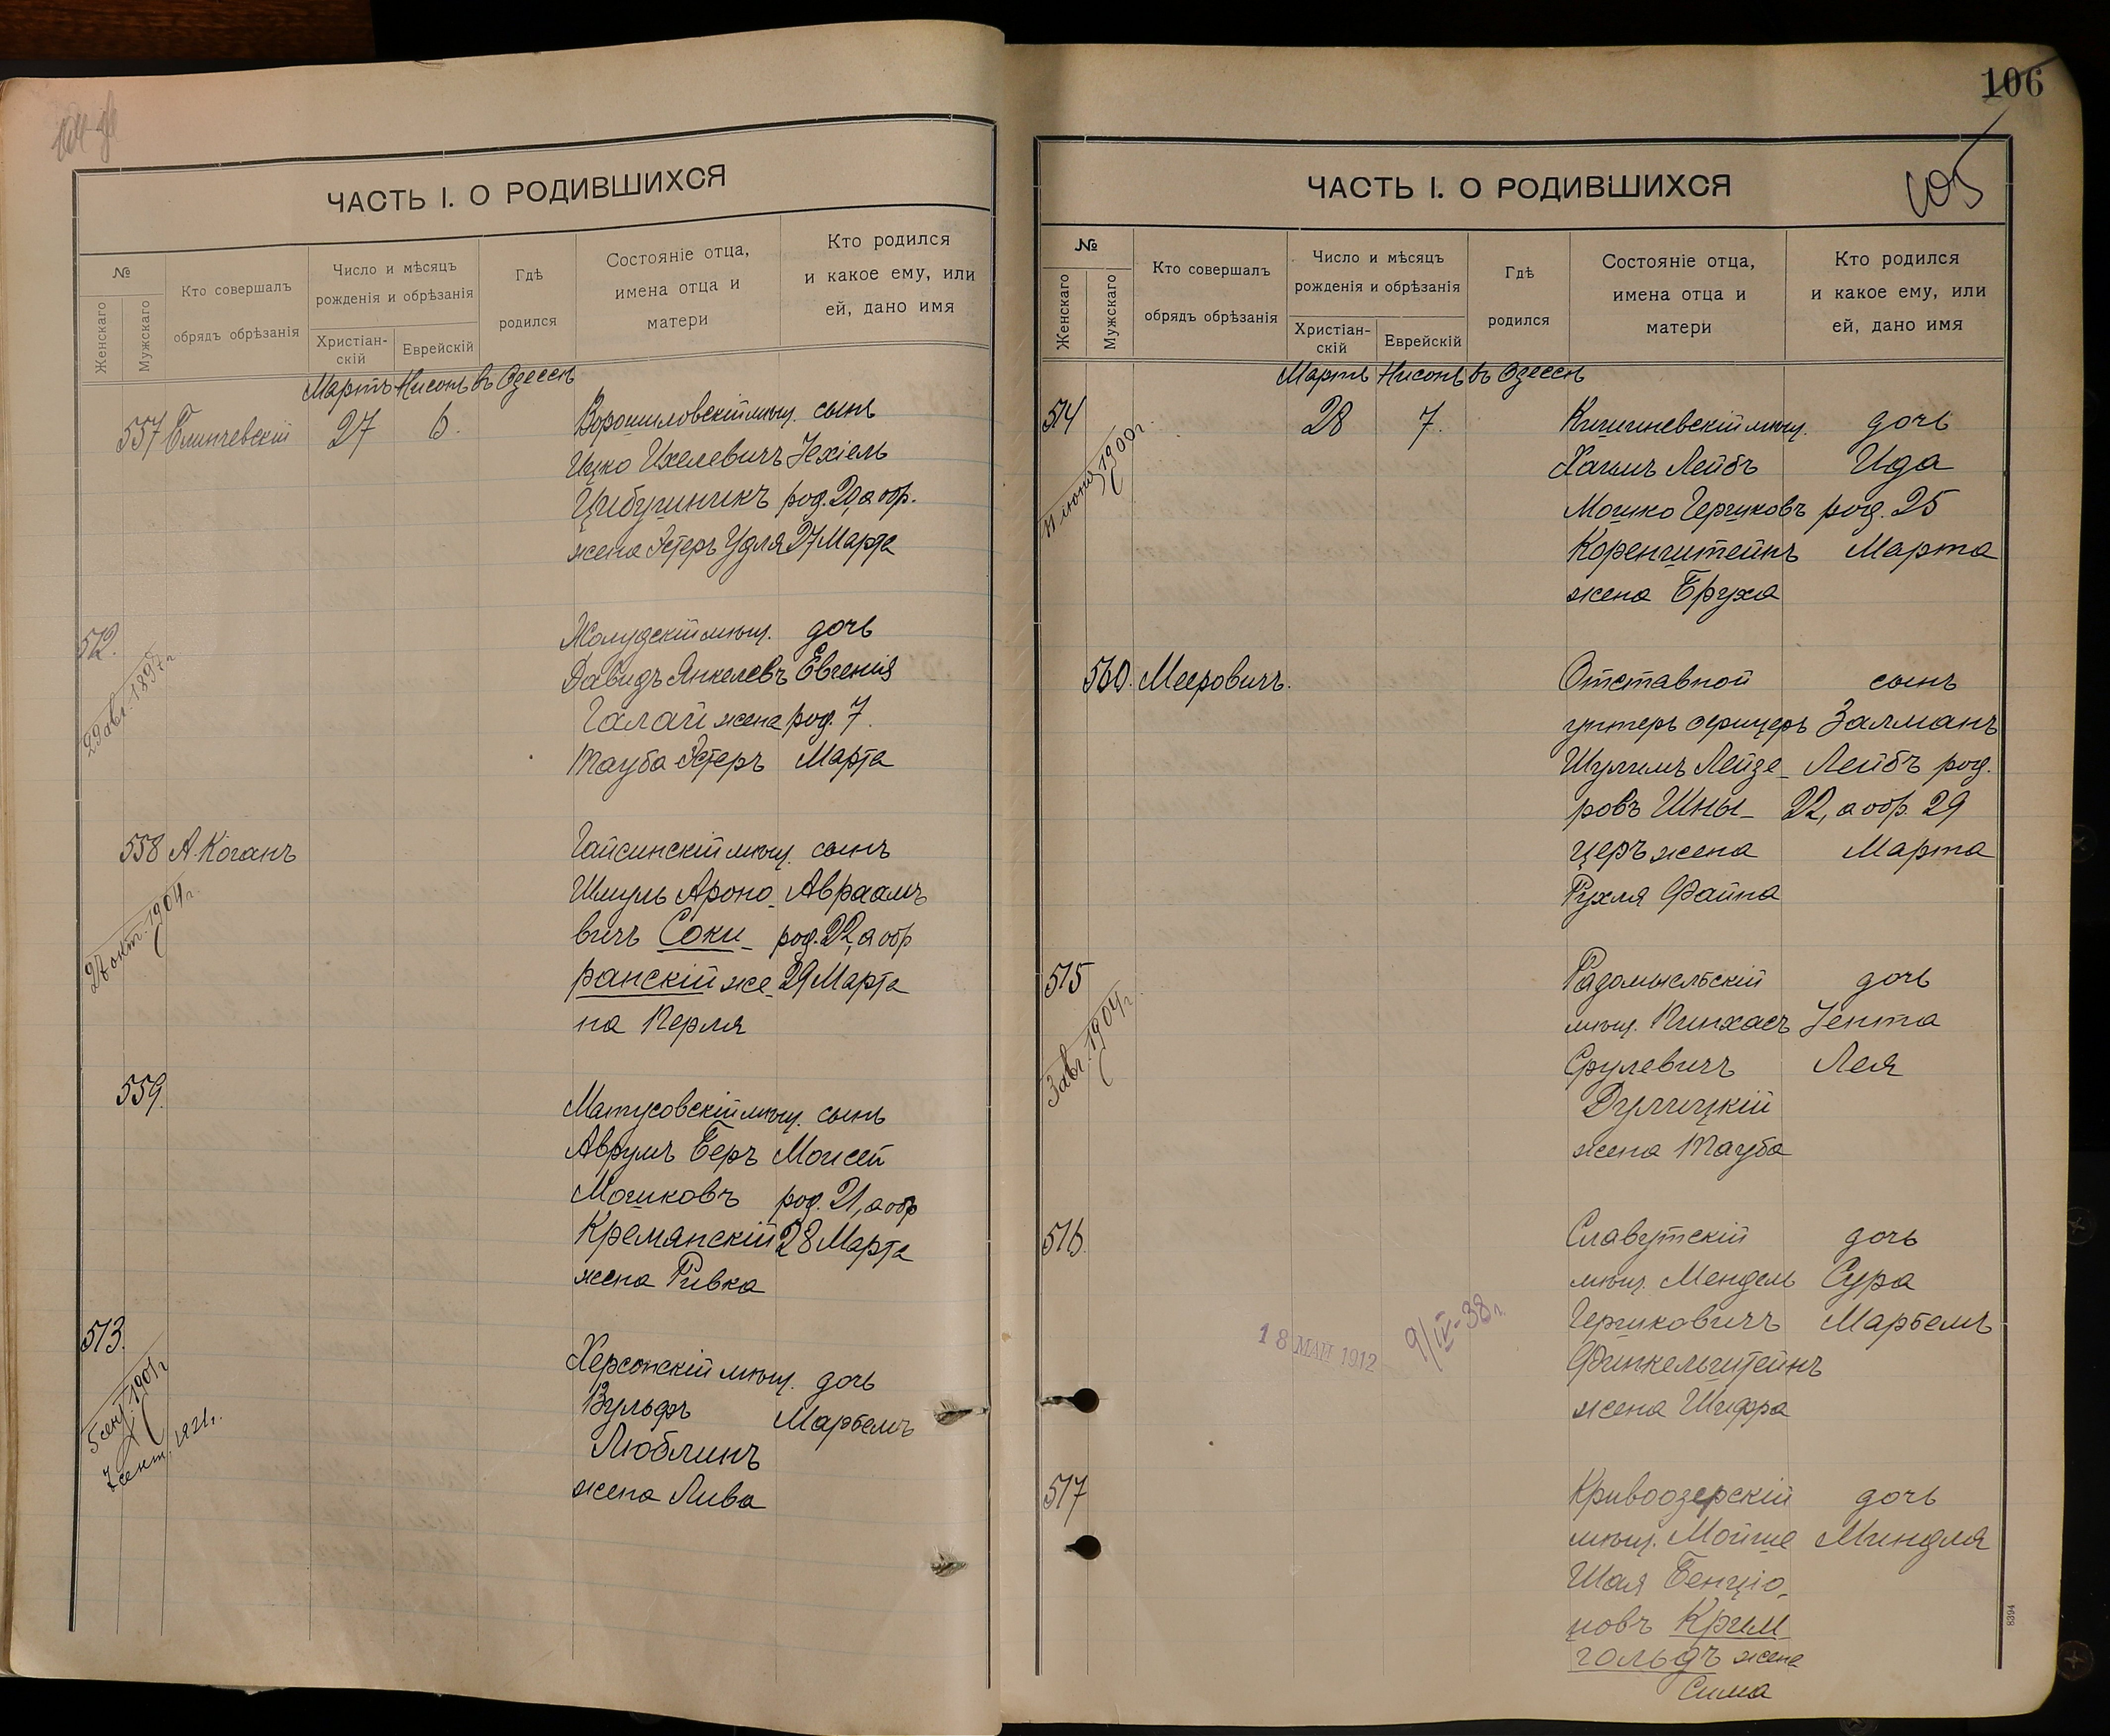 ЧАСТЬ I. О РОДИВШИХСЯ
№
Женскаго
Мужскаго
Кто совершалъ
обрядъ обрѣзанія
Число и мѣсяцъ
рожденія и обрѣзанія
Христіан-
скій
Еврейскій
Гдѣ
родился
Состояніе отца,
имена отца и
матери
Кто родился
и какое ему, или
ей, дано имя
Мартъ Нисонъ въ Одессѣ
557 Блинчевскій 27 6. Ворошиловскій мѣщ. сынъ
Ицко Ихелевичъ Іехіель
Цибушникъ род. 20, а обр.
жена Эстеръ Удля 27 Марта
512. Жолудскій мѣщ. дочь
29 авг. 1897 г.
Давидъ Янкелевъ Евгенія
Галай жена род. 7.
Тауба Эстеръ Марта
558 А. Коганъ Гайсинскій мѣщ. сынъ
27 окт. 1904 г.
Шмуль Ароно- Авраамъ
вичъ Соки- род. 22, а обр
ранскій же- 29 Марта
на Перля
559. Матусовскій мѣщ. сынъ
Аврумъ Беръ Моисей
Мошковъ род. 21, а обр
Кремянскій 28 Марта
жена Ривка
513. Херсонскій мѣщ. дочь
5 сент. 1901 г.
7 сент. 1921 г.
Вульфъ Марьемъ
Люблинъ
жена Лива
106
105
ЧАСТЬ I. О РОДИВШИХСЯ
№
Женскаго
Мужскаго
Кто совершалъ
обрядъ обрѣзанія
Число и мѣсяцъ
рожденія и обрѣзанія
Христіан-
скій
Еврейскій
Гдѣ
родился
Состояніе отца,
имена отца и
матери
Кто родился
и какое ему, или
ей, дано имя
Мартъ Нисонъ въ Одессѣ
514 28 7. Кишиневскій мѣщ. дочь
11 іюня 1900 г.
Хаимъ Лейбъ Ида
Мошко Гершковъ род. 25
Коренштейнъ Марта
жена Бруха
560. Мееровичъ. Отставной сынъ
унтеръ офицеръ Залманъ
Шулимъ Лейзе- Лейбъ род.
ровъ Шны- 22, а обр. 29
церъ жена Марта
Рухля Файна
515 Радомысльскій дочь
3 авг. 1904 г.
мѣщ. Пинхасъ Іента
Срулевичъ Лея
Дулицкій
жена Тауба
516. Славутскій дочь
мѣщ. Мендель Сура
Гершковичъ Марьемъ
18 МАЯ 1912 9/IV-38 г.
Финкельштейнъ
жена Шифра
517 Кривоозерскій дочь
мѣщ. Мойше Миндля
Шая Бенціо-
новъ Крим
гольдъ жена
Сима
8394